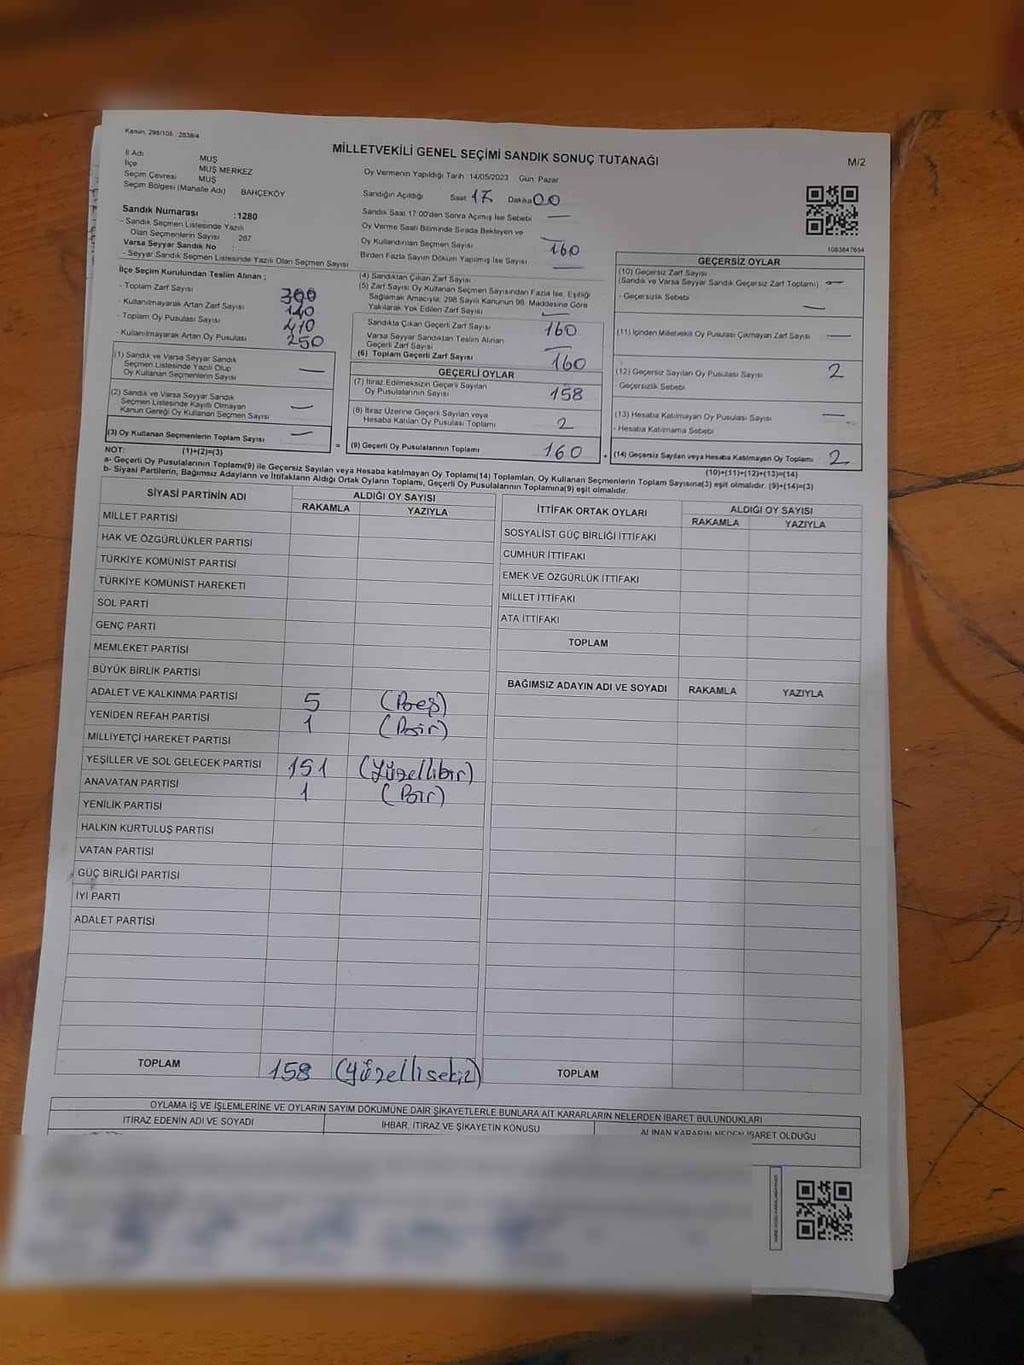 Kanun, 298/105 : 2839/4
MİLLETVEKİLİ GENEL SEÇİMİ SANDIK SONUÇ TUTANAĞI
M/2
İl Adı MUŞ
İlçe MUŞ MERKEZ
Seçim Çevresi MUŞ
Seçim Bölgesi (Mahalle Adı) BAHÇEKÖY
Sandık Numarası :1280
- Sandık Seçmen Listesinde Yazılı
Olan Seçmenlerin Sayısı : 267
Varsa Seyyar Sandık No :
- Seyyar Sandık Seçmen Listesinde Yazılı Olan Seçmen Sayısı
İlçe Seçim Kurulundan Teslim Alınan ;
- Toplam Zarf Sayısı 300
- Kullanılmayarak Artan Zarf Sayısı 140
- Toplam Oy Pusulası Sayısı 410
- Kullanılmayarak Artan Oy Pusulası 250
(1) Sandık ve Varsa Seyyar Sandık
Seçmen Listesinde Yazılı Olup
Oy Kullanan Seçmenlerin Sayısı —
(2) Sandık ve Varsa Seyyar Sandık
Seçmen Listesinde Kayıtlı Olmayan
Kanun Gereği Oy Kullanan Seçmen Sayısı —
(3) Oy Kullanan Seçmenlerin Toplam Sayısı —
(1)+(2)=(3)
Oy Vermenin Yapıldığı Tarih :14/05/2023 Gün: Pazar
Sandığın Açıldığı Saat 17 Dakika 00
Sandık Saat 17:00'den Sonra Açılmış İse Sebebi —
Oy Verme Saati Bitiminde Sırada Bekleyen ve
Oy Kullandırılan Seçmen Sayısı —
Birden Fazla Sayım Döküm Yapılmış İse Sayısı 160
(4) Sandıktan Çıkan Zarf Sayısı —
(5) Zarf Sayısı Oy Kullanan Seçmen Sayısından Fazla İse, Eşitliği
Sağlamak Amacıyla, 298 Sayılı Kanunun 98. Maddesine Göre
Yakılarak Yok Edilen Zarf Sayısı —
Sandıkta Çıkan Geçerli Zarf Sayısı 160
Varsa Seyyar Sandıktan Teslim Alınan
Geçerli Zarf Sayısı —
(6) Toplam Geçerli Zarf Sayısı 160
GEÇERLİ OYLAR
(7) İtiraz Edilmeksizin Geçerli Sayılan
Oy Pusulalarının Sayısı 158
(8) İtiraz Üzerine Geçerli Sayılan veya
Hesaba Katılan Oy Pusulaları Toplamı 2
= (9) Geçerli Oy Pusulalarının Toplamı 160
1083847654
GEÇERSİZ OYLAR
(10) Geçersiz Zarf Sayısı
(Sandık ve Varsa Seyyar Sandık Geçersiz Zarf Toplamı) —
- Geçersizlik Sebebi —
(11) İçinden Milletvekili Oy Pusulası Çıkmayan Zarf Sayısı —
(12) Geçersiz Sayılan Oy Pusulası Sayısı 2
- Geçersizlik Sebebi
(13) Hesaba Katılmayan Oy Pusulası Sayısı —
- Hesaba Katılmama Sebebi —
+ (14) Geçersiz Sayılan veya Hesaba Katılmayan Oy Toplamı 2
(10)+(11)+(12)+(13)=(14)
NOT:
a- Geçerli Oy Pusulalarının Toplamı(9) ile Geçersiz Sayılan veya Hesaba katılmayan Oy Toplamı(14) Toplamları, Oy Kullanan Seçmenlerin Toplam Sayısına(3) eşit olmalıdır. (9)+(14)=(3)
b- Siyasi Partilerin, Bağımsız Adayların ve İttifakların Aldığı Ortak Oyların Toplamı, Geçerli Oy Pusulalarının Toplamına(9) eşit olmalıdır.
SİYASİ PARTİNİN ADI ALDIĞI OY SAYISI
RAKAMLA YAZIYLA
MİLLET PARTİSİ
HAK VE ÖZGÜRLÜKLER PARTİSİ
TÜRKİYE KOMÜNİST PARTİSİ
TÜRKİYE KOMÜNİST HAREKETİ
SOL PARTİ
GENÇ PARTİ
MEMLEKET PARTİSİ
BÜYÜK BİRLİK PARTİSİ
ADALET VE KALKINMA PARTİSİ 5 (Beş)
YENİDEN REFAH PARTİSİ 1 (Bir)
MİLLİYETÇİ HAREKET PARTİSİ
YEŞİLLER VE SOL GELECEK PARTİSİ 151 (Yüzellibir)
ANAVATAN PARTİSİ 1 (Bir)
YENİLİK PARTİSİ
HALKIN KURTULUŞ PARTİSİ
VATAN PARTİSİ
GÜÇ BİRLİĞİ PARTİSİ
İYİ PARTİ
ADALET PARTİSİ
TOPLAM 158 (Yüzellisekiz)
İTTİFAK ORTAK OYLARI ALDIĞI OY SAYISI
RAKAMLA YAZIYLA
SOSYALİST GÜÇ BİRLİĞİ İTTİFAKI
CUMHUR İTTİFAKI
EMEK VE ÖZGÜRLÜK İTTİFAKI
MİLLET İTTİFAKI
ATA İTTİFAKI
TOPLAM
BAĞIMSIZ ADAYIN ADI VE SOYADI RAKAMLA YAZIYLA
TOPLAM
OYLAMA İŞ VE İŞLEMLERİNE VE OYLARIN SAYIM DÖKÜMÜNE DAİR ŞİKAYETLERLE BUNLARA AİT KARARLARIN NELERDEN İBARET BULUNDUKLARI
İTİRAZ EDENİN ADI VE SOYADI İHBAR, İTİRAZ VE ŞİKAYETİN KONUSU ALINAN KARARIN NEDEN İBARET OLDUĞU